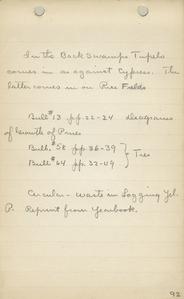 In the Back Swamps Tupelo
comes in as against Cypress. The
latter comes in on Pine Fields
Bull #13 pp. 22-24 diagrams
of Growth of Pines
Bull. #58 pp. 36-39 } Ties
Bull #64 pp. 32-49
Circular - Waste in Logging Yel.
P. Reprint from Yearbook.
92